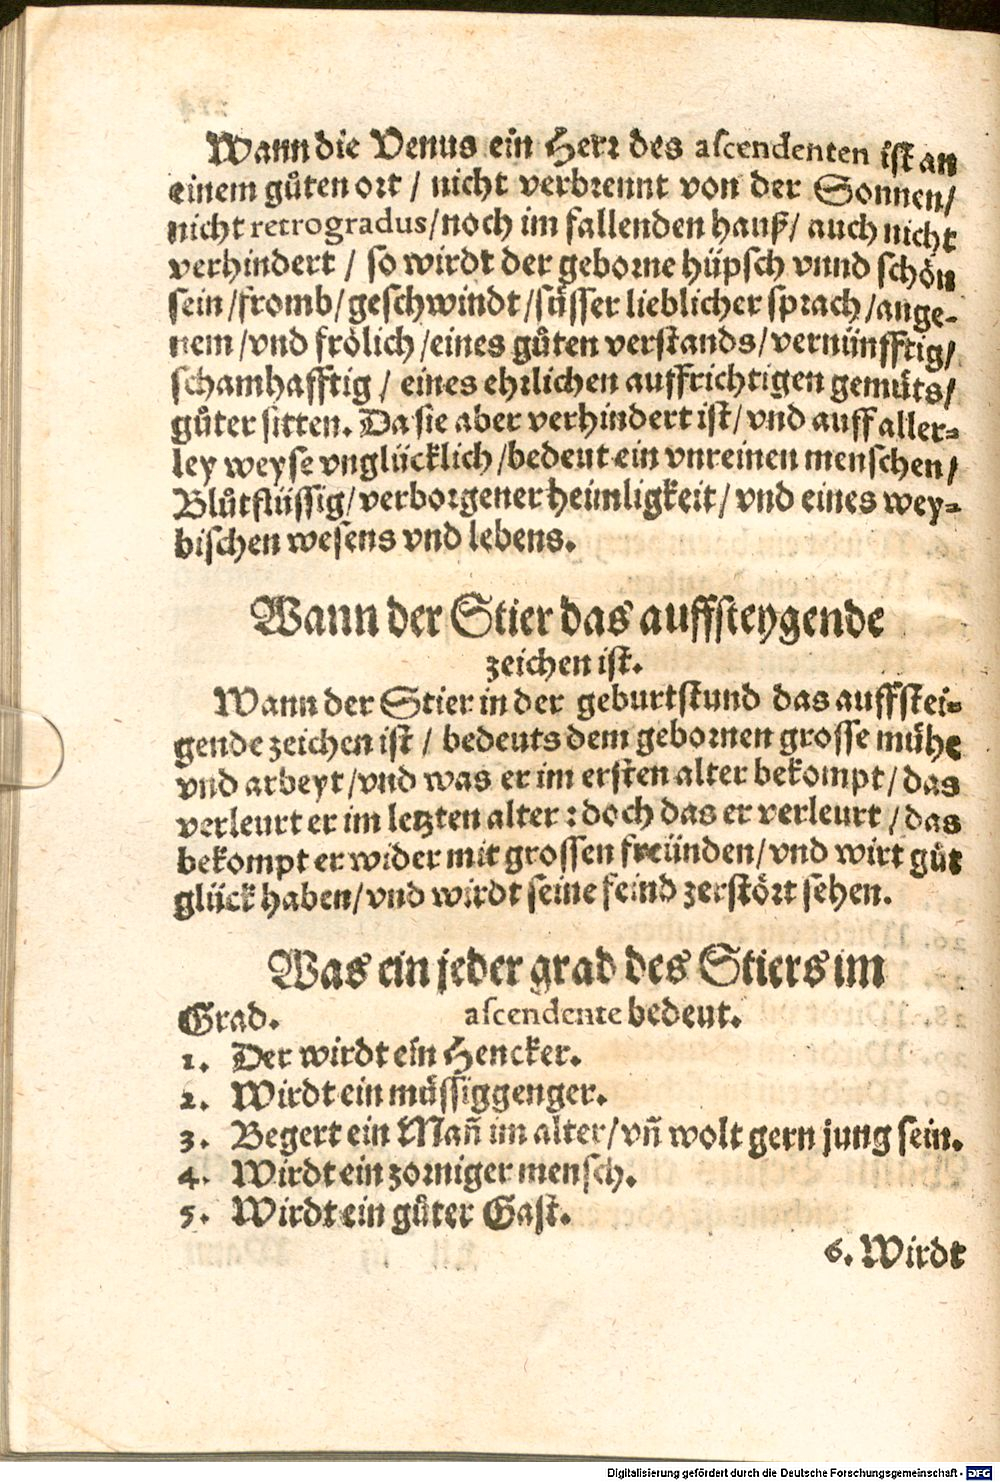 Wann die Venus ein Herr des ascendenten ist an
einem gůten ort / nicht verbrennt von der Sonnen/
nicht retrogradus/noch im fallenden hauß/ auch nicht
verhindert / so wirdt der geborne hüpsch vnnd schön
sein/fromb/geschwindt/süsser lieblicher sprach/ange-
nem/vnd frölich/eines gůten verstands/vernünfftig/
schamhafftig / eines ehrlichen auffrichtigen gemüts/
gůter sitten. Da sie aber verhindert ist/vnd auff aller-
ley weyse vnglücklich/bedeut ein vnreinen menschen/
Blůtflüssig/verborgener heimligkeit/vnd eines wey-
bischen wesens vnd lebens.
Wann der Stier das auffsteygende
zeichen ist.
Wann der Stier in der geburtstund das auffstei-
gende zeichen ist / bedeuts dem gebornen grosse mühe
vnd arbeyt/vnd was er im ersten alter bekompt/das
verleurt er im letzten alter: doch das er verleurt /das
bekompt er wider mit grossen freünden/vnd wirt gůt
glück haben/vnd wirdt seine feind zerstört sehen.
Was ein jeder grad des Stiers im
Grad. ascendente bedeut.
1. Der wirdt ein Hencker.
2. Wirdt ein müssiggenger.
3. Begert ein Mañ im alter/vñ wolt gern jung sein.
4. Wirdt ein zorniger mensch.
5. Wirdt ein gůter Gast.
6. Wirdt
Digitalisierung gefördert durch die Deutsche Forschungsgemeinschaft - DFG